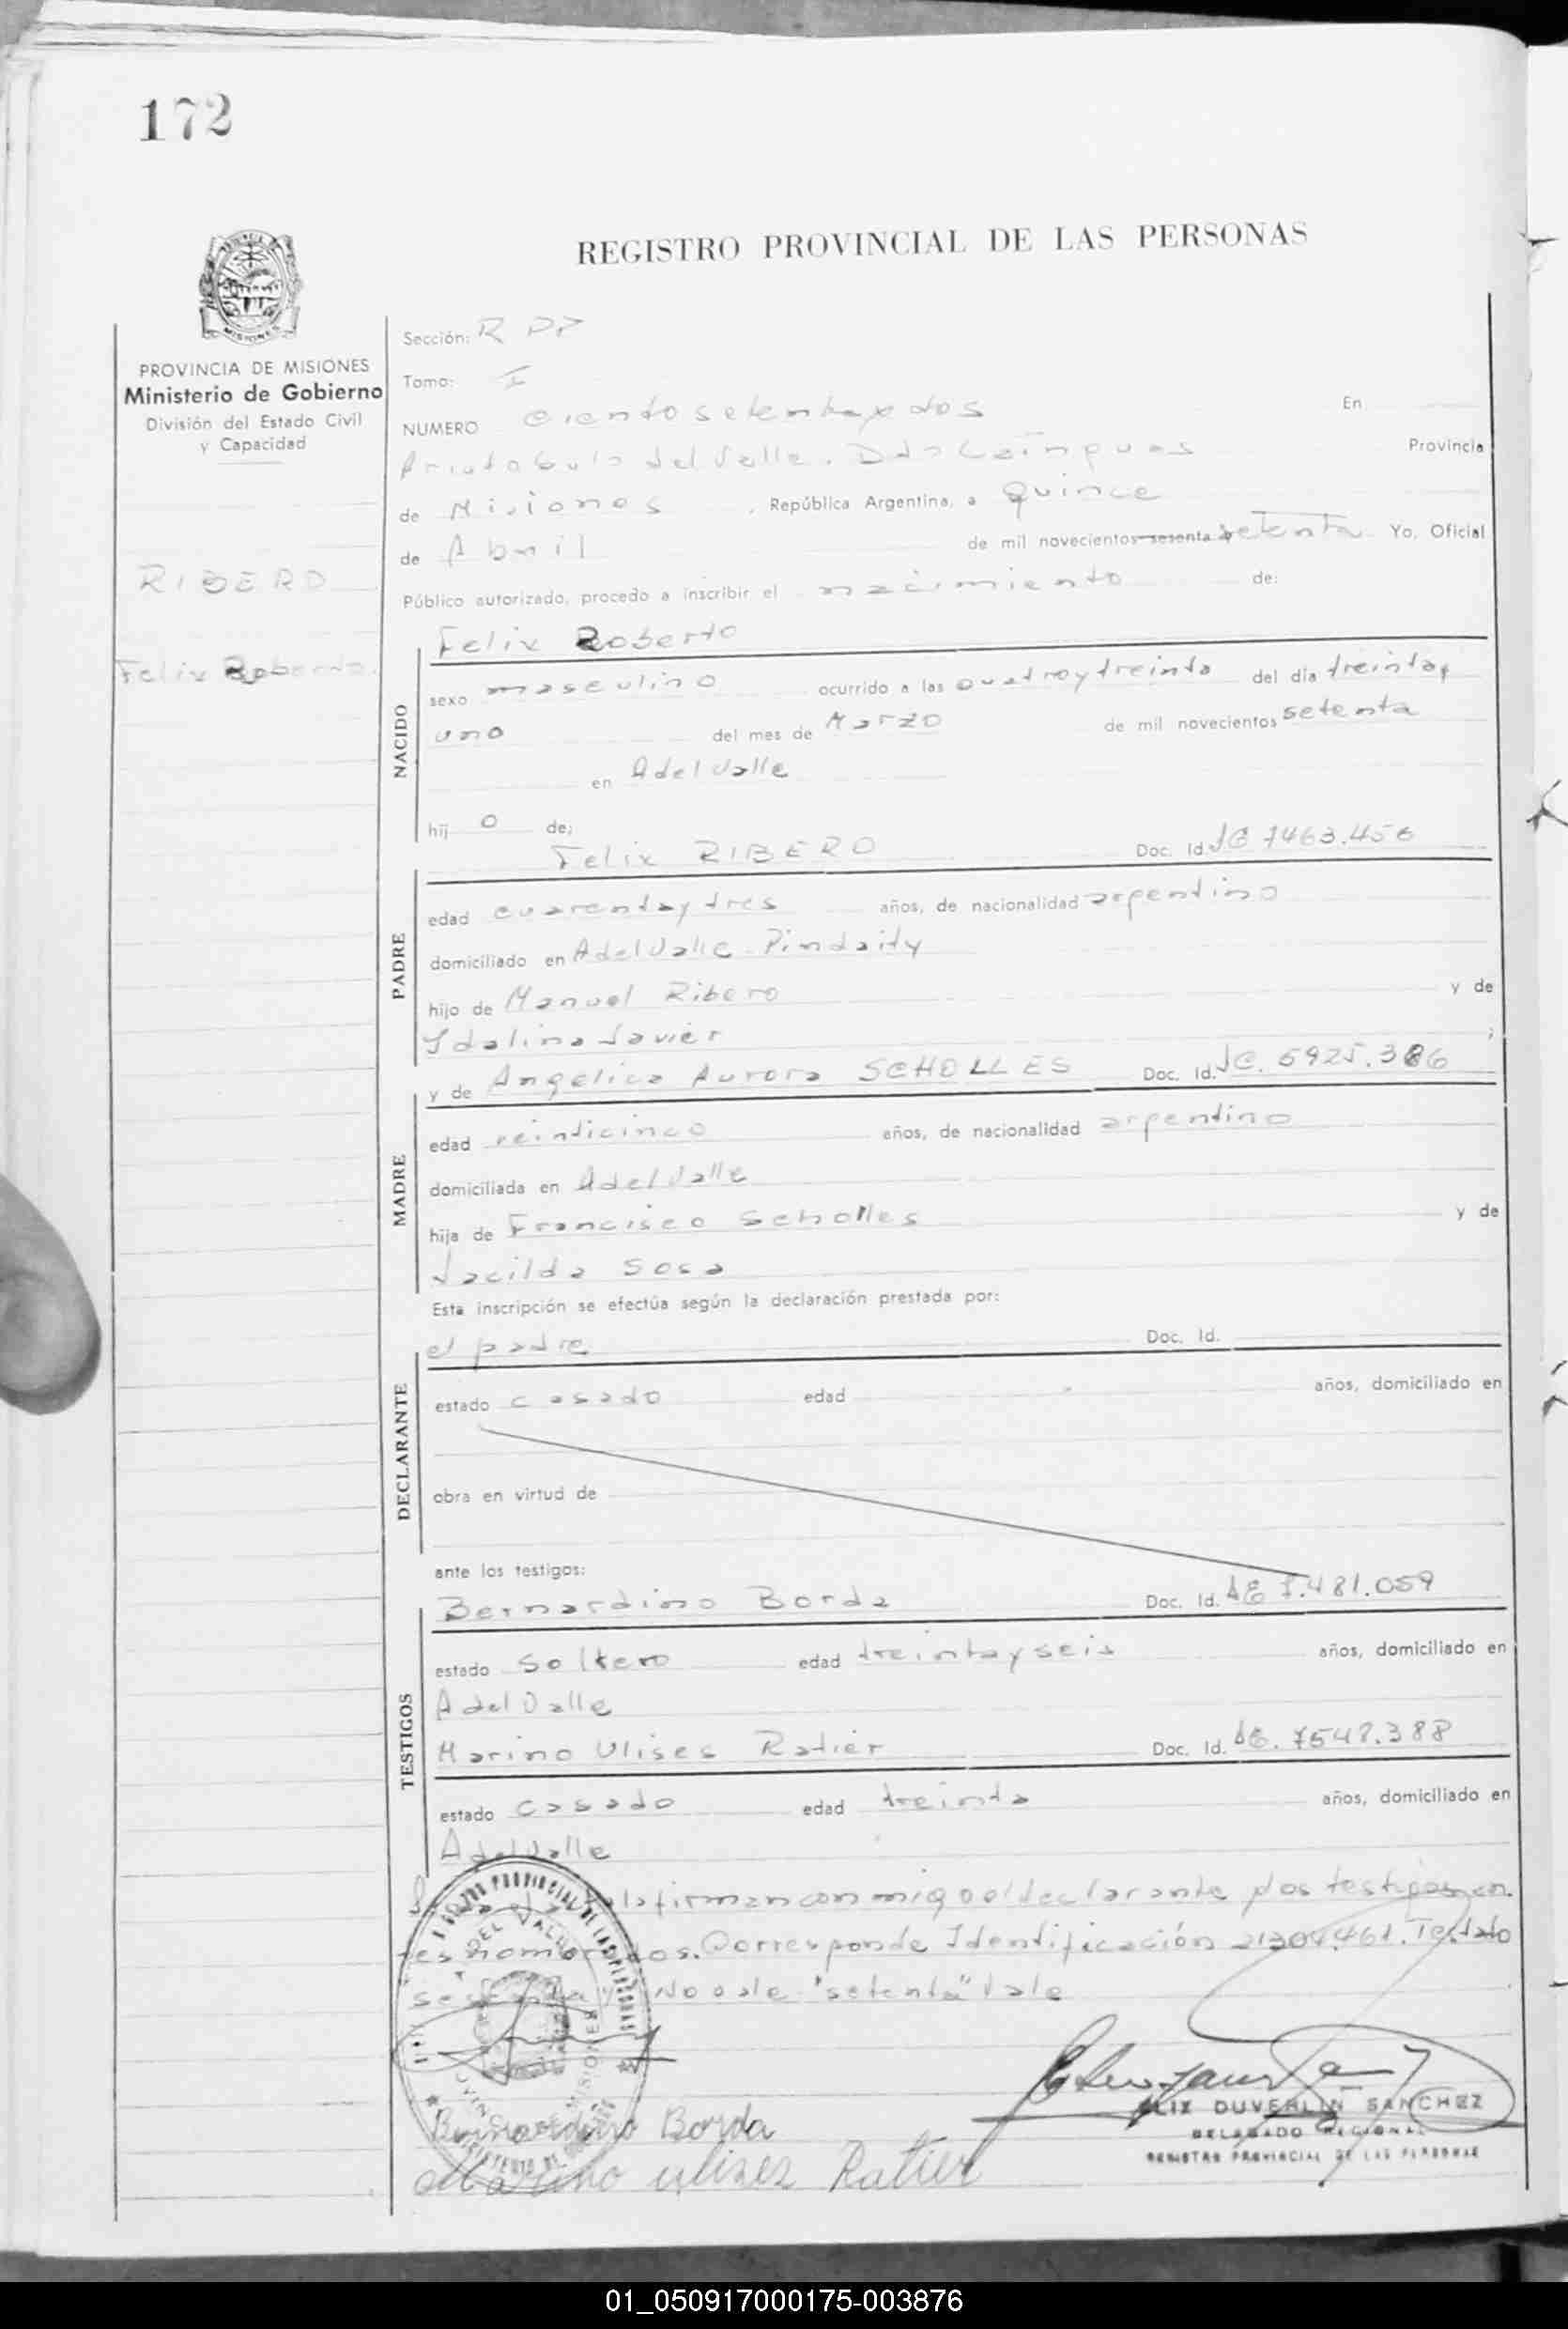 172
REGISTRO PROVINCIAL DE LAS PERSONAS
PROVINCIA DE MISIONES
Ministerio de Gobierno
División del Estado Civil
y Capacidad
RIBERO
Felix Roberto
Sección: R PP
Tomo: I
NUMERO ciento setenta y dos En
del Valle. Provincia
de Misiones , República Argentina, a quince
de Abril de mil novecientos sesenta setenta Yo, Oficial
Público autorizado, procedo a inscribir el nacimiento de:
Felix Roberto
NACIDO
sexo masculino ocurrido a las cuatro y treinta del día treinta y
uno del mes de Marzo de mil novecientos setenta
en A del Valle
hij o de;
Felix RIBERO Doc. Id. 7463.456
PADRE
edad cuarenta y tres años, de nacionalidad argentino
domiciliado en A del Valle - Pindaity
hijo de Manuel Ribero y de
Idalina Javier ;
y de Angelica Aurora SCHOLLES Doc. Id. 5925.386
MADRE
edad veinticinco años, de nacionalidad argentino
domiciliada en A del Valle
hija de Francisco Scholles y de
Jacilda Sosa
Esta inscripción se efectúa según la declaración prestada por:
el padre Doc. Id.
DECLARANTE
estado casado edad años, domiciliado en
obra en virtud de
ante los testigos:
Bernardino Borda Doc. Id. 7.481.059
TESTIGOS
estado soltero edad treinta y seis años, domiciliado en
A del Valle
Marino Ulises Ratier Doc. Id. 7548.388
estado casado edad treinta años, domiciliado en
A del Valle
firman conmigo el declarante y los testigos
. Corresponde Identificación 21304.461. Testado
No vale "setenta" Vale
Bernardino Borda
Marino Ulises Ratier
FELIX DUVERLIN SANCHEZ
DELEGADO REGIONAL
REGISTRO PROVINCIAL DE LAS PERSONAS
01_050917000175-003876